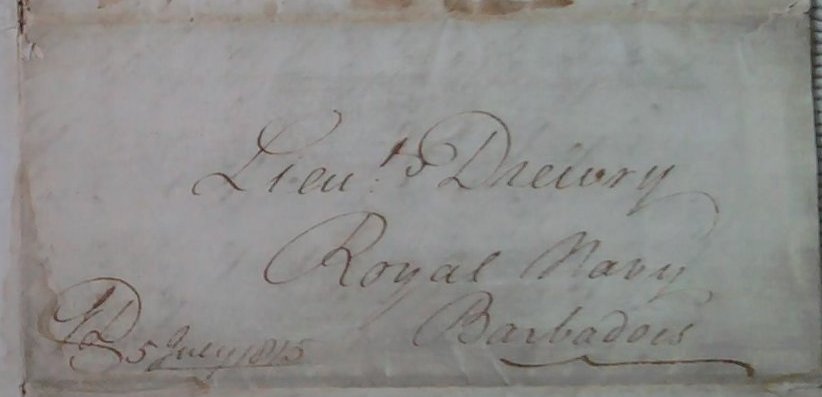 Lieu.t Drewry
Royal Navy
Barbadoes
5 July 1815